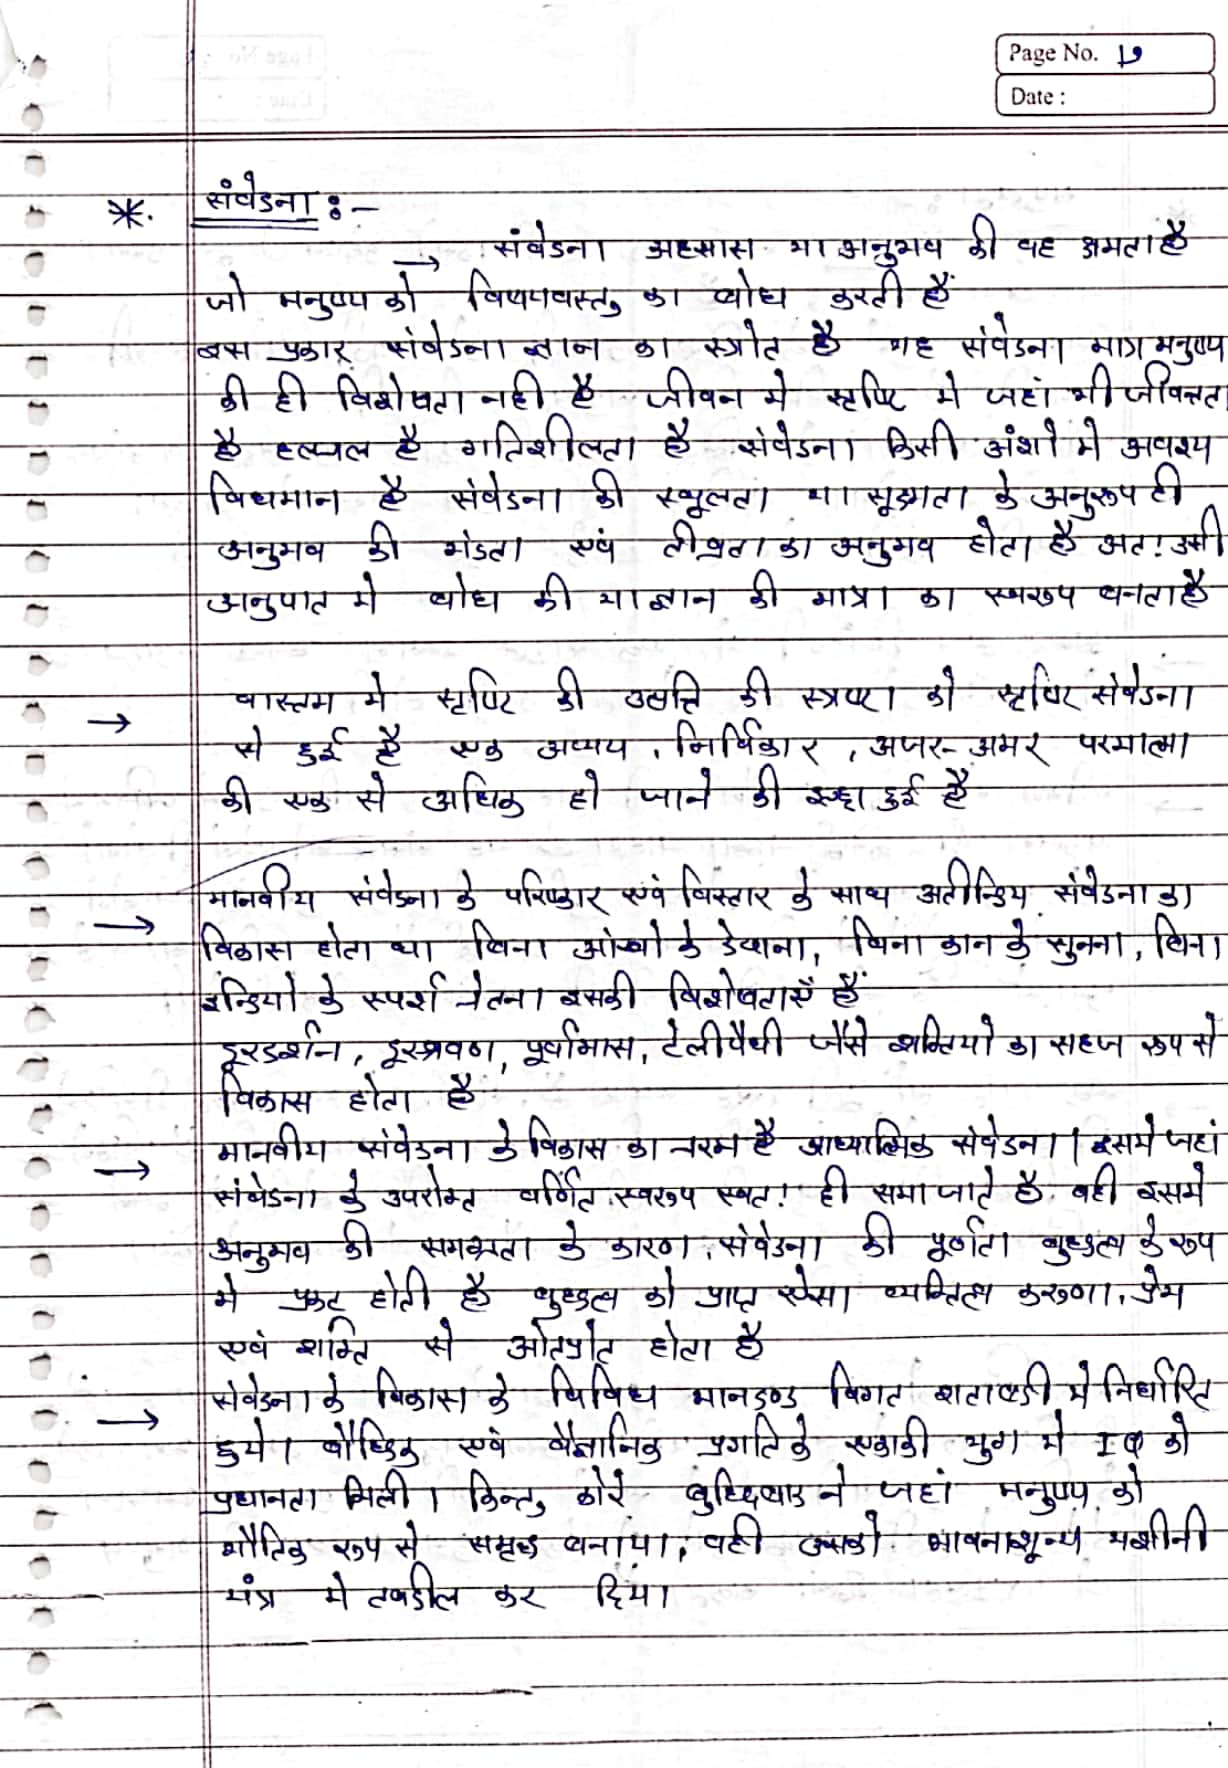 Page No. 19
Date :
*. संवेडना :-
→ संवेडना अहसास या अनुभव की वह क्षमता है
जो मनुष्य को विषयवस्तु का बोध करती हैं
इस प्रकार संवेडना ज्ञान का स्त्रोत है यह संवेडना मात्र मनुष्य
की ही विशेषता नही है जीवन मे सृष्टि मे जहां भी जीवन्तता
है हलचल है गतिशीलता है संवेडना किसी अंशो मे अवश्य
विधमान है संवेडना की स्थूलता या सूक्ष्मता के अनुरूप ही
अनुभव की मंडता एवं तीव्रता का अनुभव होता है अत: उसी
अनुपात मे बोध की या ज्ञान की मात्रा का स्वरूप बनता है
→ वास्तम मे सृष्टि की उत्पत्ति की को सृष्टि संवेडना
से हुई है एक अव्यय, निर्विकार, अजर-अमर परमात्मा
की एक से अधिक हो जाने की इच्छा हुई है
→ मानवीय संवेडना के परिष्कार एवं विस्तार के साथ अतीन्डिय संवेडना का
विकास होता था बिना आंखो के डेखना, बिना कान के सुनना, बिना
इन्डियो के स्पर्श चेतना इसकी विशेषताएँ हैं
डूरडर्शन, डूरश्रवण, पूर्वाभास, टेलीपैथी जैसे शक्तियो का सहज रूप से
विकास होता है
→ मानवीय संवेडना के विकास का चरम है आध्यात्मिक संवेडना। इसमे जहां
संवेडना के उपरोक्त वर्णित स्वरूप स्वत: ही समा जाते है वही इसमे
अनुभव की समग्रता के कारण, संवेडना की पूर्णता बुध्दत्व के रूप
मे प्रकट होती है बुध्दत्व को प्राप्त ऐसा व्यक्तित्व करूणा, प्रेम
एवं शक्ति से ओतप्रोत होता है
→ संवेडना के विकास के विविध मानडण्ड विगत शताब्डी मे निर्धारित
हुये। बौध्दिक एवं वैज्ञानिक प्रगति के एकाकी युग मे I.Q को
प्रधानता मिली। किन्तु कोरे बुध्दिवाड ने जहां मनुष्य को
भौतिक रूप से समृद्ध बनाया, वही उसको भावनाशून्य मशीनी
यंत्र मे तबडील कर दिया।